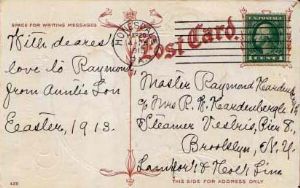 SPACE FOR WRITING MESSAGES
Post Card.
HONESDALE
With dearest
love to Raymond
from Auntie Lou
Easter, 1913.
Master Raymond Hardenbergh
c/o Mrs R. K. Hardenbergh
Steamer Vestris, Pier 8,
Brooklyn, N.Y.
Lamport & Holt Line
THIS SIDE FOR ADDRESS ONLY